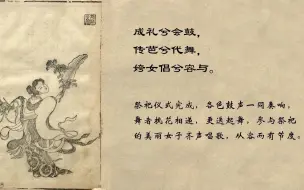 成礼兮会鼓，
传芭兮代舞，
姱女倡兮容与。
祭祀仪式完成，各色鼓声一同奏响，
舞者执花相递，更迭起舞，参与祭祀
的美丽女子齐声唱歌，从容而有节度。